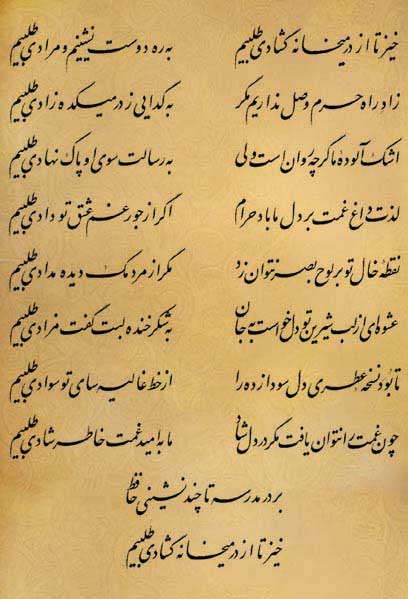 خیز تا از در میخانه گشادی طلبیم
به ره دوست نشینیم و مرادی طلبیم
زاد راه حرم وصل نداریم مگر
به گدایی ز در میکده زادی طلبیم
اشک آلوده ما گرچه روان است ولی
به رسالت سوی او پاک نهادی طلبیم
لذت داغ غمت بر دل ما باد حرام
اگر از جور غم عشق تو دادی طلبیم
نقطه خال تو بر لوح بصر نتوان زد
مگر از مردمک دیده مدادی طلبیم
عشوه‌ای از لب شیرین تو دل خواست به جان
به شکرخنده لبت گفت مزادی طلبیم
تا بود نسخه عطری دل سودازده را
از خط غالیه سای تو سوادی طلبیم
چون غمت را نتوان یافت مگر در دل شاد
ما به امید غمت خاطر شادی طلبیم
بر در مدرسه تا چند نشینی حافظ
خیز تا از در میخانه گشادی طلبیم